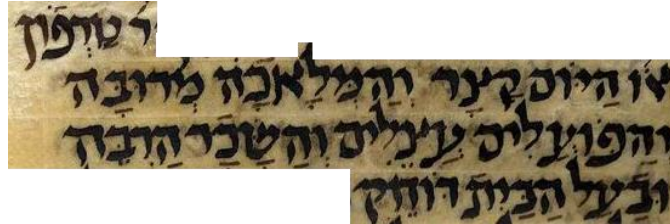 ר טרפון
או היום קצר והמלאכה מרובה
והפועלים עצלים והשכר הרבה
ובעל הבית דוחק